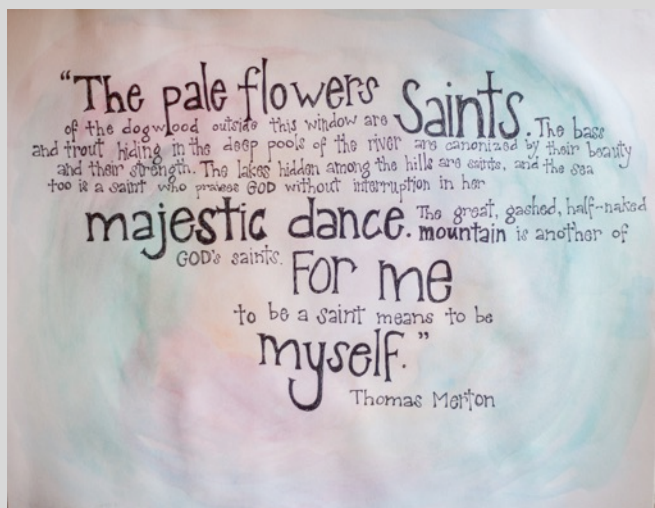 “The pale flowers
of the dogwood outside this window are Saints. The bass
and trout hiding in the deep pools of the river are canonized by their beauty
and their strength. The lakes hidden among the hills are saints, and the sea
too is a saint who praises GOD without interruption in her
majestic dance. The great, gashed, half-naked
mountain is another of
GOD's saints. For me
to be a saint means to be
myself.”
Thomas Merton